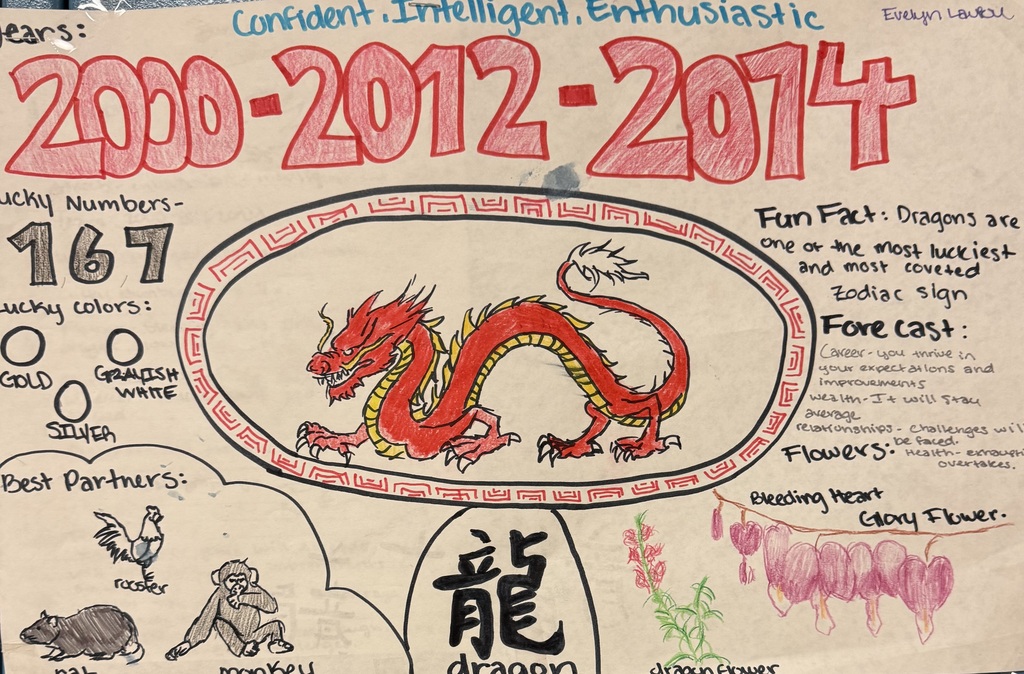 Confident. Intelligent. Enthusiastic
ears:
2000-2012-2014
ucky Numbers-
167
Lucky colors:
GOLD
GRAYISH
WHITE
SILVER
Best Partners:
rooster
rat
monkey
龍
dragon
Fun Fact: Dragons are
one of the most luckiest
and most coveted
Zodiac sign
Forecast:
Career- you thrive in
your expectations and
improvements
wealth- It will stay
average
relationships- challenges will
be faced.
Health- exhausti
overtakes.
Flowers:
Bleeding Heart
Glory Flower.
dragon flower
Evelyn